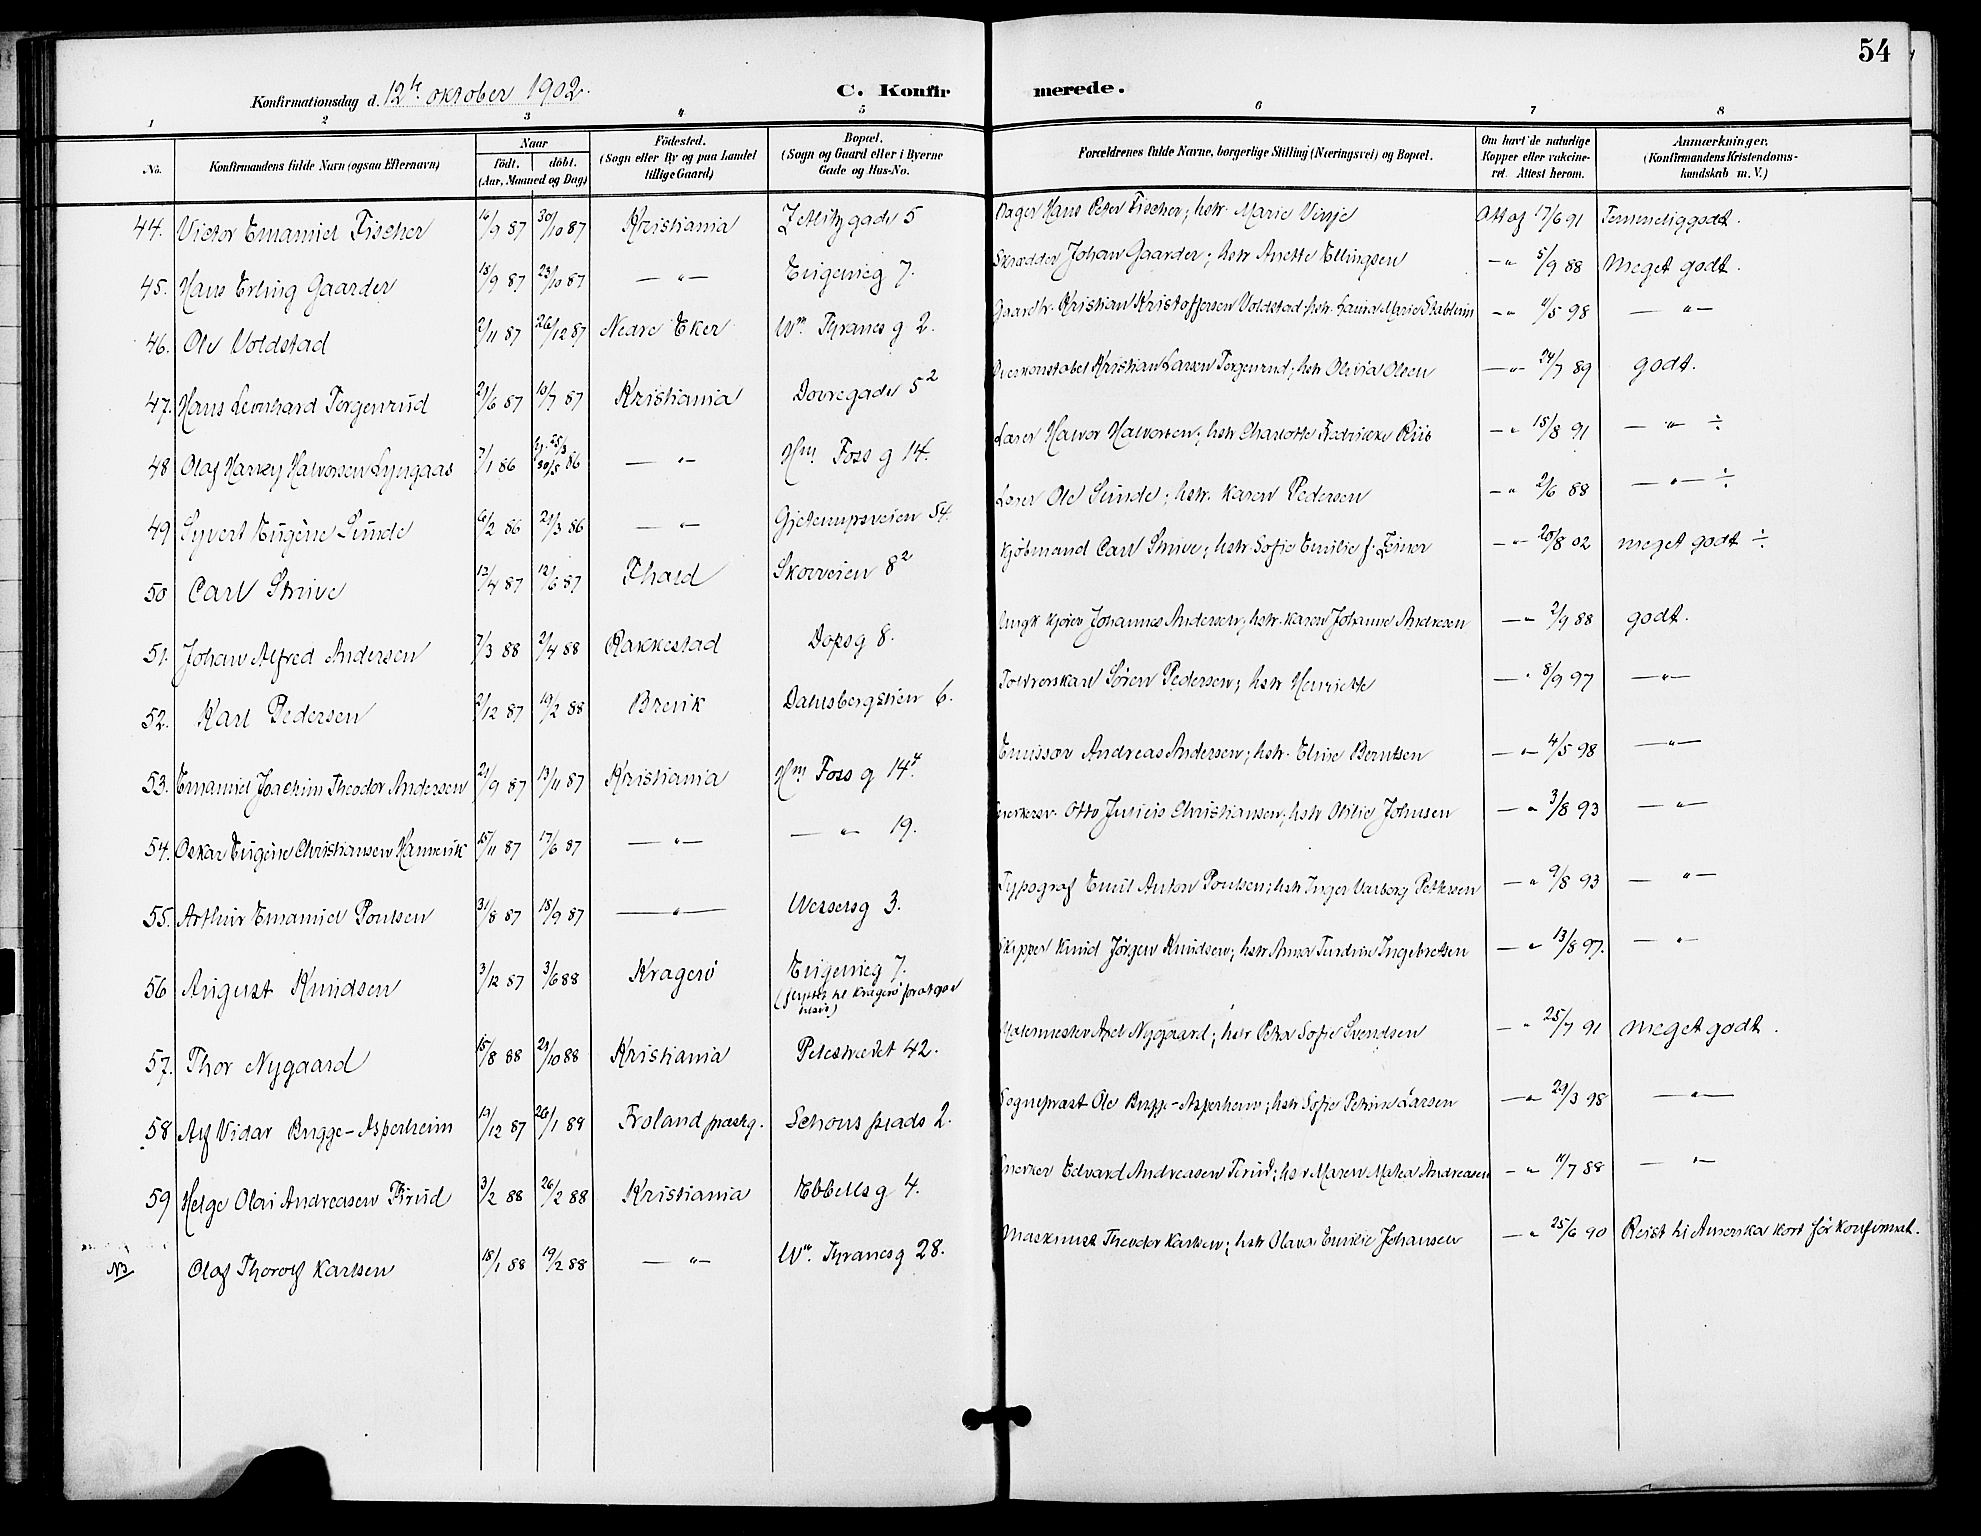 54
Konfirmationsdag d. 12te oktober 1902.
C. Konfirmerede.
1 2 3 4 5 6 7 8
No.
Konfirmandens fulde Navn (ogsaa Efternavn)
Naar
födt. döbt.
(Aar, Maaned og Dag)
Födested.
(Sogn eller By og paa Landet
tillige Gaard)
Bopæl.
(Sogn og Gaard eller i Byerne
Gade og Hus-No.
Forældrenes fulde Navne, borgerlige Stilling (Næringsvei) og Bopæl.
Om havt de naturlige
Kopper eller vaccine-
ret. Attest herom.
Anmærkninger.
(Konfirmandens Kristendoms-
kundskab m. V.)
44. Victor Emanuel Fischer 16/9 87 30/10 87 Kristiania Zetlitzgade 5 Bager Hans Peter Fischer; hstr. Marie Vinje Att af 17/6 91 Temmeliggodt.
45. Hans Erling Gaarder 18/9 87 23/10 87 — " — Eugenieg 7. Skrædder Johan Gaarder; hstr Anette Ellingsen — " 5/9 88 Meget godt.
46. Ole Voldstad 2/11 87 26/12 87 Nedre Eker Wm. Thranes g 2. Gaardbr. Kristian Kristoffersen Voldstad; hstr. Laura Marie — " 11/5 98 — " —
47. Hans Leonhard Torgenrud 21/6 87 10/7 87 Kristiania Dovregade 5² Overkonstabel Kristian Larsen Torgenrud; hstr Olivia Olsen — " — 24/7 89 godt.
48 Olaf Harvey Halvorsen Lyngaas 7/1 86 25/3 30/5 86 — " — Hm Foss g 14. Laser Halvor Halvorsen; hstr Charlotte Fredrikke Riis — " 15/8 91 — " — ÷
49 Syvert Eugéne Sunde 6/2 86 21/3 86 — " — Gjetemyrsveien 54. Laser Ole Sunde; hstr. Karen Pedersen — " 2/6 88 — " — ÷
50 Carl Struve 12/4 87 12/6 87 Skovveien 8² Kjøbmand Carl Struve; hstr. Sofie Emilie f. — " — 20/8 02 meget godt ÷
51. Johan Alfred Andersen 7/3 88 2/4 88 Rakkestad Dopsg 8. Kjører Johannes Andersen; hstr. Karen Johanne Andresen — " 2/9 88 godt.
52. Karl Pedersen 2/12 87 19/2 88 Brevik Dælenbergstien 6. Søren Pedersen; hstr Henriette — " 8/9 97 — " —
53. Emanuel Joachim Theodor Andersen 21/9 87 13/11 87 Kristiania Hm Foss g 14⁴. Emissær Andreas Andersen; hstr. Elise Berntsen — " 4/5 98 — " —
54. Oskar Eugéne Christiansen Hannevik 25/11 87 17/6 87 — " — — " — 19. Otto Julius Christiansen; hstr Otilie Johnsen — " 3/8 93 — " —
55. Arthur Emanuel Poulsen 31/8 87 18/9 87 — " — Wesselsg 3. Typograf Emil Anton Poulsen; hstr Inger Valborg Pettersen — " 9/8 93 — " —
56 August Knudsen 3/12 87 3/6 88 Kragerø Eugenieg 7.
(flyttet til Kragerø for
Skipper Knud Jørgen Knudsen; hstr. Anna Tundine Ingebretsen — " 13/8 97. — " —
57. Thor Nygaard 15/8 88 21/10 88 Kristiania Pilestrædet 42. Malermester Axel Nygaard; hstr Petra Sofie Svendsen — " 25/7 91 Meget godt.
58 Alf Vidar Bugge-Asperheim 19/12 87 26/1 88 Froland præstg. Schous plads 2. Sogneprest Ole Bugge-Asperheim; hstr Sofie Petrine Larsen — " 29/3 98 — " —
59 Helge Olai Andreasen Tirud 3/2 88 26/2 88 Kristiania Ebbellsg 4. Snekker Edvard Andreasen Tirud; hstr Maren Matea Andreasen — " 11/7 88 — " —
NB Olaf Thorolf Karlsen 18/1 88 19/2 88 — " — Wm. Thranesg 28. Maskinist Theodor Karlsen; hstr Olava Emilie Johansen — " 25/6 90 Reist til Amerika kort før konfirmat.